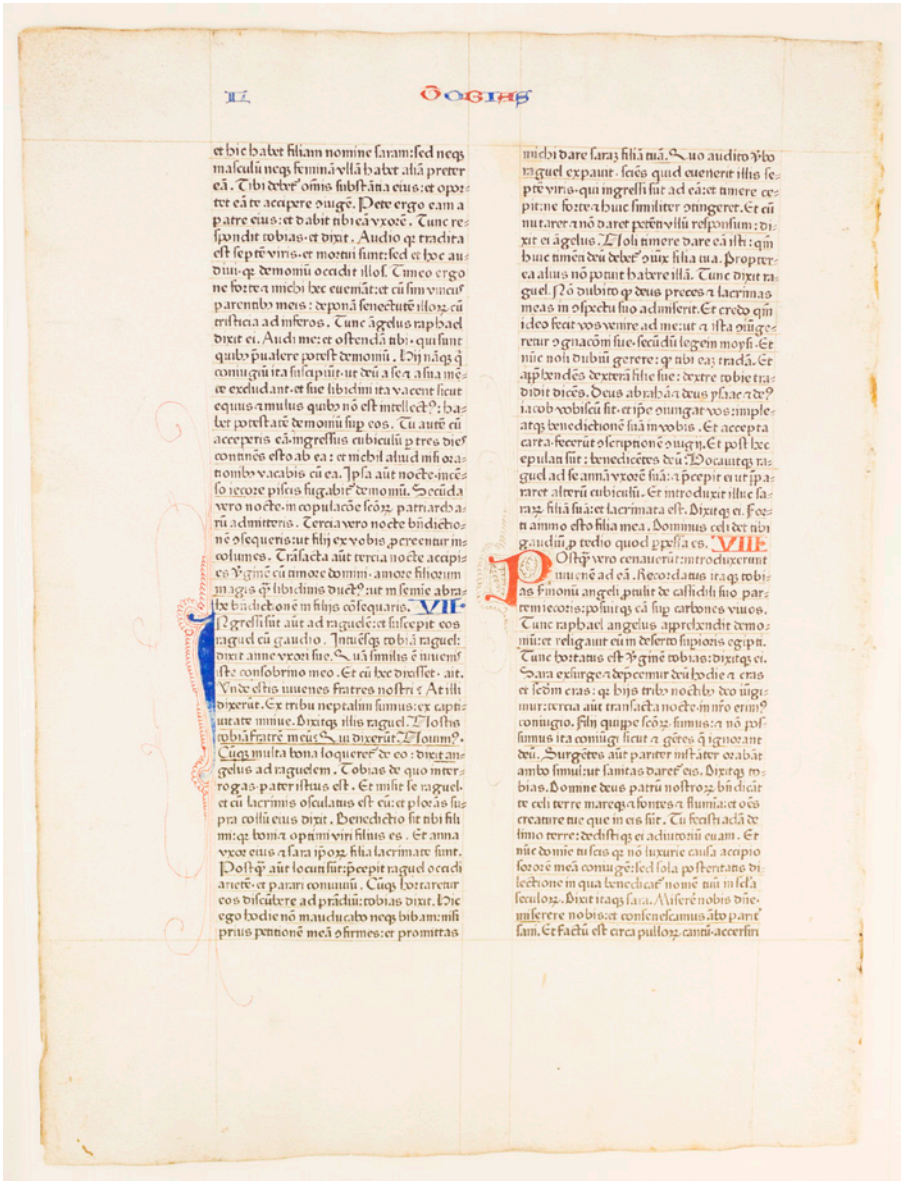 L TOBIAS
et hic habet filiam nomine saram: sed neqꝫ
masculū neqꝫ feminā vllā habet aliā preter
eā. Tibi debet᷑ om̄is substātia eius: et opor⸗
tet eā te accipere ꝯiugē. Pete ergo eam a
patre eius: et dabit tibi eā vxorē. Tunc re⸗
spondit tobias. et dixit. Audio qꝛ tradita
est septē viris. et mortui sunt: sed et hoc au⸗
diui. qꝛ demoniū occidit illos. Timeo ergo
ne forte ⁊ michi hec eueniāt: et cū sim vnicus
parentibꝫ meis: deponā senectutē illoꝝ cū
tristicia ad inferos. Tunc āgelus raphael
dixit ei. Audi me: et ostendā tibi. qui sunt
quibꝫ p̄ualere potest demoniū. Hij nāqꝫ q̄
coniugiū ita suscipiūt. ut deū a se ⁊ a sua mē⸗
te excludant. et sue libidini ita vacent sicut
equus ⁊ mulus quibꝫ nō est intellectꝰ: ha⸗
bet potestatē demoniū suꝑ eos. Tu autē cū
acceperis eā. ingressus cubiculū ꝑ tres dies
continēs esto ab ea: et nichil aliud nisi ora⸗
tionibꝫ vacabis cū ea. Ipsa aūt nocte. incē⸗
so iecore piscis fugabit᷑ demoniū. Secūda
vero nocte. in copulacōe scōꝝ patriarcha⸗
rū admitteris. Tercia vero nocte bn̄dictio⸗
nē ꝯsequeris: ut filij ex vobis ꝓcreentur in⸗
columes. Trāsacta aūt tercia nocte accipi⸗
es ꝟginē cū timore domini. amore filiorum
magis q̄ libidinis ductꝰ: ut in semie abra⸗
he bn̄dictionē in filijs cōsequaris. VII
INgressi sūt aūt ad raguelē: et suscepit eos
raguel cū gaudio. Intuēsqꝫ tobiā raguel:
dixit anne vxori sue. Quā similis ē iuuenis
iste consobrino meo. Et cū hec dixisset. ait.
Vnde estis iuuenes fratres nostri? At illi
dixerūt. Ex tribu neptalim sumus: ex capti⸗
uitate niniue. Dixitqꝫ illis raguel. Nostis
tobiā fratrē meū? Qui dixerūt. Nouimꝰ.
Cūqꝫ multa bona loqueret᷑ de eo: dixit an⸗
gelus ad raguelem. Tobias de quo inter⸗
rogas. pater istius est. Et misit se raguel.
et cū lacrimis osculatus est eū: et plorās su⸗
pra collū eius dixit. Benedictio sit tibi fili
mi: qꝛ boni ⁊ optimi viri filius es. Et anna
vxor eius ⁊ sara ip̄oꝝ filia lacrimate sunt.
Postq̄ aūt locuti sūt: p̄cepit raguel occidi
arietē. et parari conuiuiū. Cūqꝫ hortaretur
eos discūbere ad prādiū: tobias dixit. Hic
ego hodie nō manducabo neqꝫ bibam: nisi
prius petitionē meā ꝯfirmes: et promittas
michi dare saraꝫ filiā tuā. Quo audito ꝟbo
raguel expauit. sciēs quid euenerit illis se⸗
ptē viris. qui ingressi sūt ad eā: et timere ce⸗
pit: ne forte ⁊ huic similiter ꝯtingeret. Et cū
nutaret ⁊ nō daret petēti vllū responsum: di⸗
xit ei āgelus. Noli timere dare eā isti: qm̄
huic timēti deū debet᷑ ꝯiux filia tua. Propter⸗
ea alius nō potuit habere illā. Tunc dixit ra⸗
guel. Nō dubito qꝙ deus preces ⁊ lacrimas
meas in ꝯspectu suo admiserit. Et credo qm̄
ideo fecit vos venire ad me: ut ⁊ ista ꝯiūge⸗
retur ꝯgnacōni sue. secūdū legem moysi. Et
nūc noli dubiū gerere: qꝙ tibi eaꝫ tradā. Et
app̄hendēs dexterā filie sue: dextre tobie tra⸗
didit dicēs. Deus abrahā ⁊ deus ysaac ⁊ deꝰ
iacob vobiscū sit. et ip̄e ꝯiungat vos: imple⸗
atqꝫ benedictionē suā in vobis. Et accepta
carta. fecerūt ꝯscriptionē ꝯiugij. Et post hec
epulati sūt: benedicētes deū. Vocauitqꝫ ra⸗
guel ad se annā vxorē suā: ⁊ p̄cepit ei ut p̄pa⸗
raret alterū cubiculū. Et introduxit illuc sa⸗
raꝫ filiā suā: et lacrimata est. Dixitqꝫ ei. For⸗
ti animo esto filia mea. Dominus celi det tibi
gaudiū ꝓ tedio quod ꝑpessa es. VIII
POstq̄ vero cenauerūt: introduxerunt
iuuenē ad eā. Recordatus itaqꝫ tobi⸗
as s̄monū angeli. ꝓtulit de cassidili suo par⸗
tem iecoris: posuitqꝫ eā suꝑ carbones viuos.
Tunc raphael angelus apprehendit demo⸗
niū: et religauit eū in deserto suꝑioris egipti.
Tunc hortatus est ꝟginē tobias: dixitqꝫ ei.
Sara exsurge ⁊ dep̄cemur deū hodie ⁊ cras
et scd̄m cras: qꝛ hijs tribꝫ noctibꝫ deo iūgi⸗
mur: tercia aūt transacta nocte. in nr̄o erimꝰ
coniugio. Filij quippe scōꝝ sumus: ⁊ nō pos⸗
sumus ita coniūgi sicut ⁊ gētes q̄ ignorant
deū. Surgētes aūt pariter instāter orabāt
ambo simul: ut sanitas daret᷑ eis. Dixitqꝫ to⸗
bias. Domine deus patrū nostroꝝ bn̄dicāt
te celi terre mareqꝫ ⁊ fontes ⁊ flumīa: et om̄s
creature tue que in eis sūt. Tu fecisti adā de
limo terre: dedistiqꝫ ei adiutoriū euam. Et
nūc domīe tu scis qꝛ nō luxurie causa accipio
sororē meā coniugē: sed sola posteritatis di⸗
lectione in qua benedicat᷑ nomē tuū in scl̄a
seculoꝝ. Dixit itaqꝫ sara. Miserē nobis dn̄e.
miserere nobis: et consenescamus ābo parit᷑
sani. Et factū est circa pulloꝝ cantū. accersiri